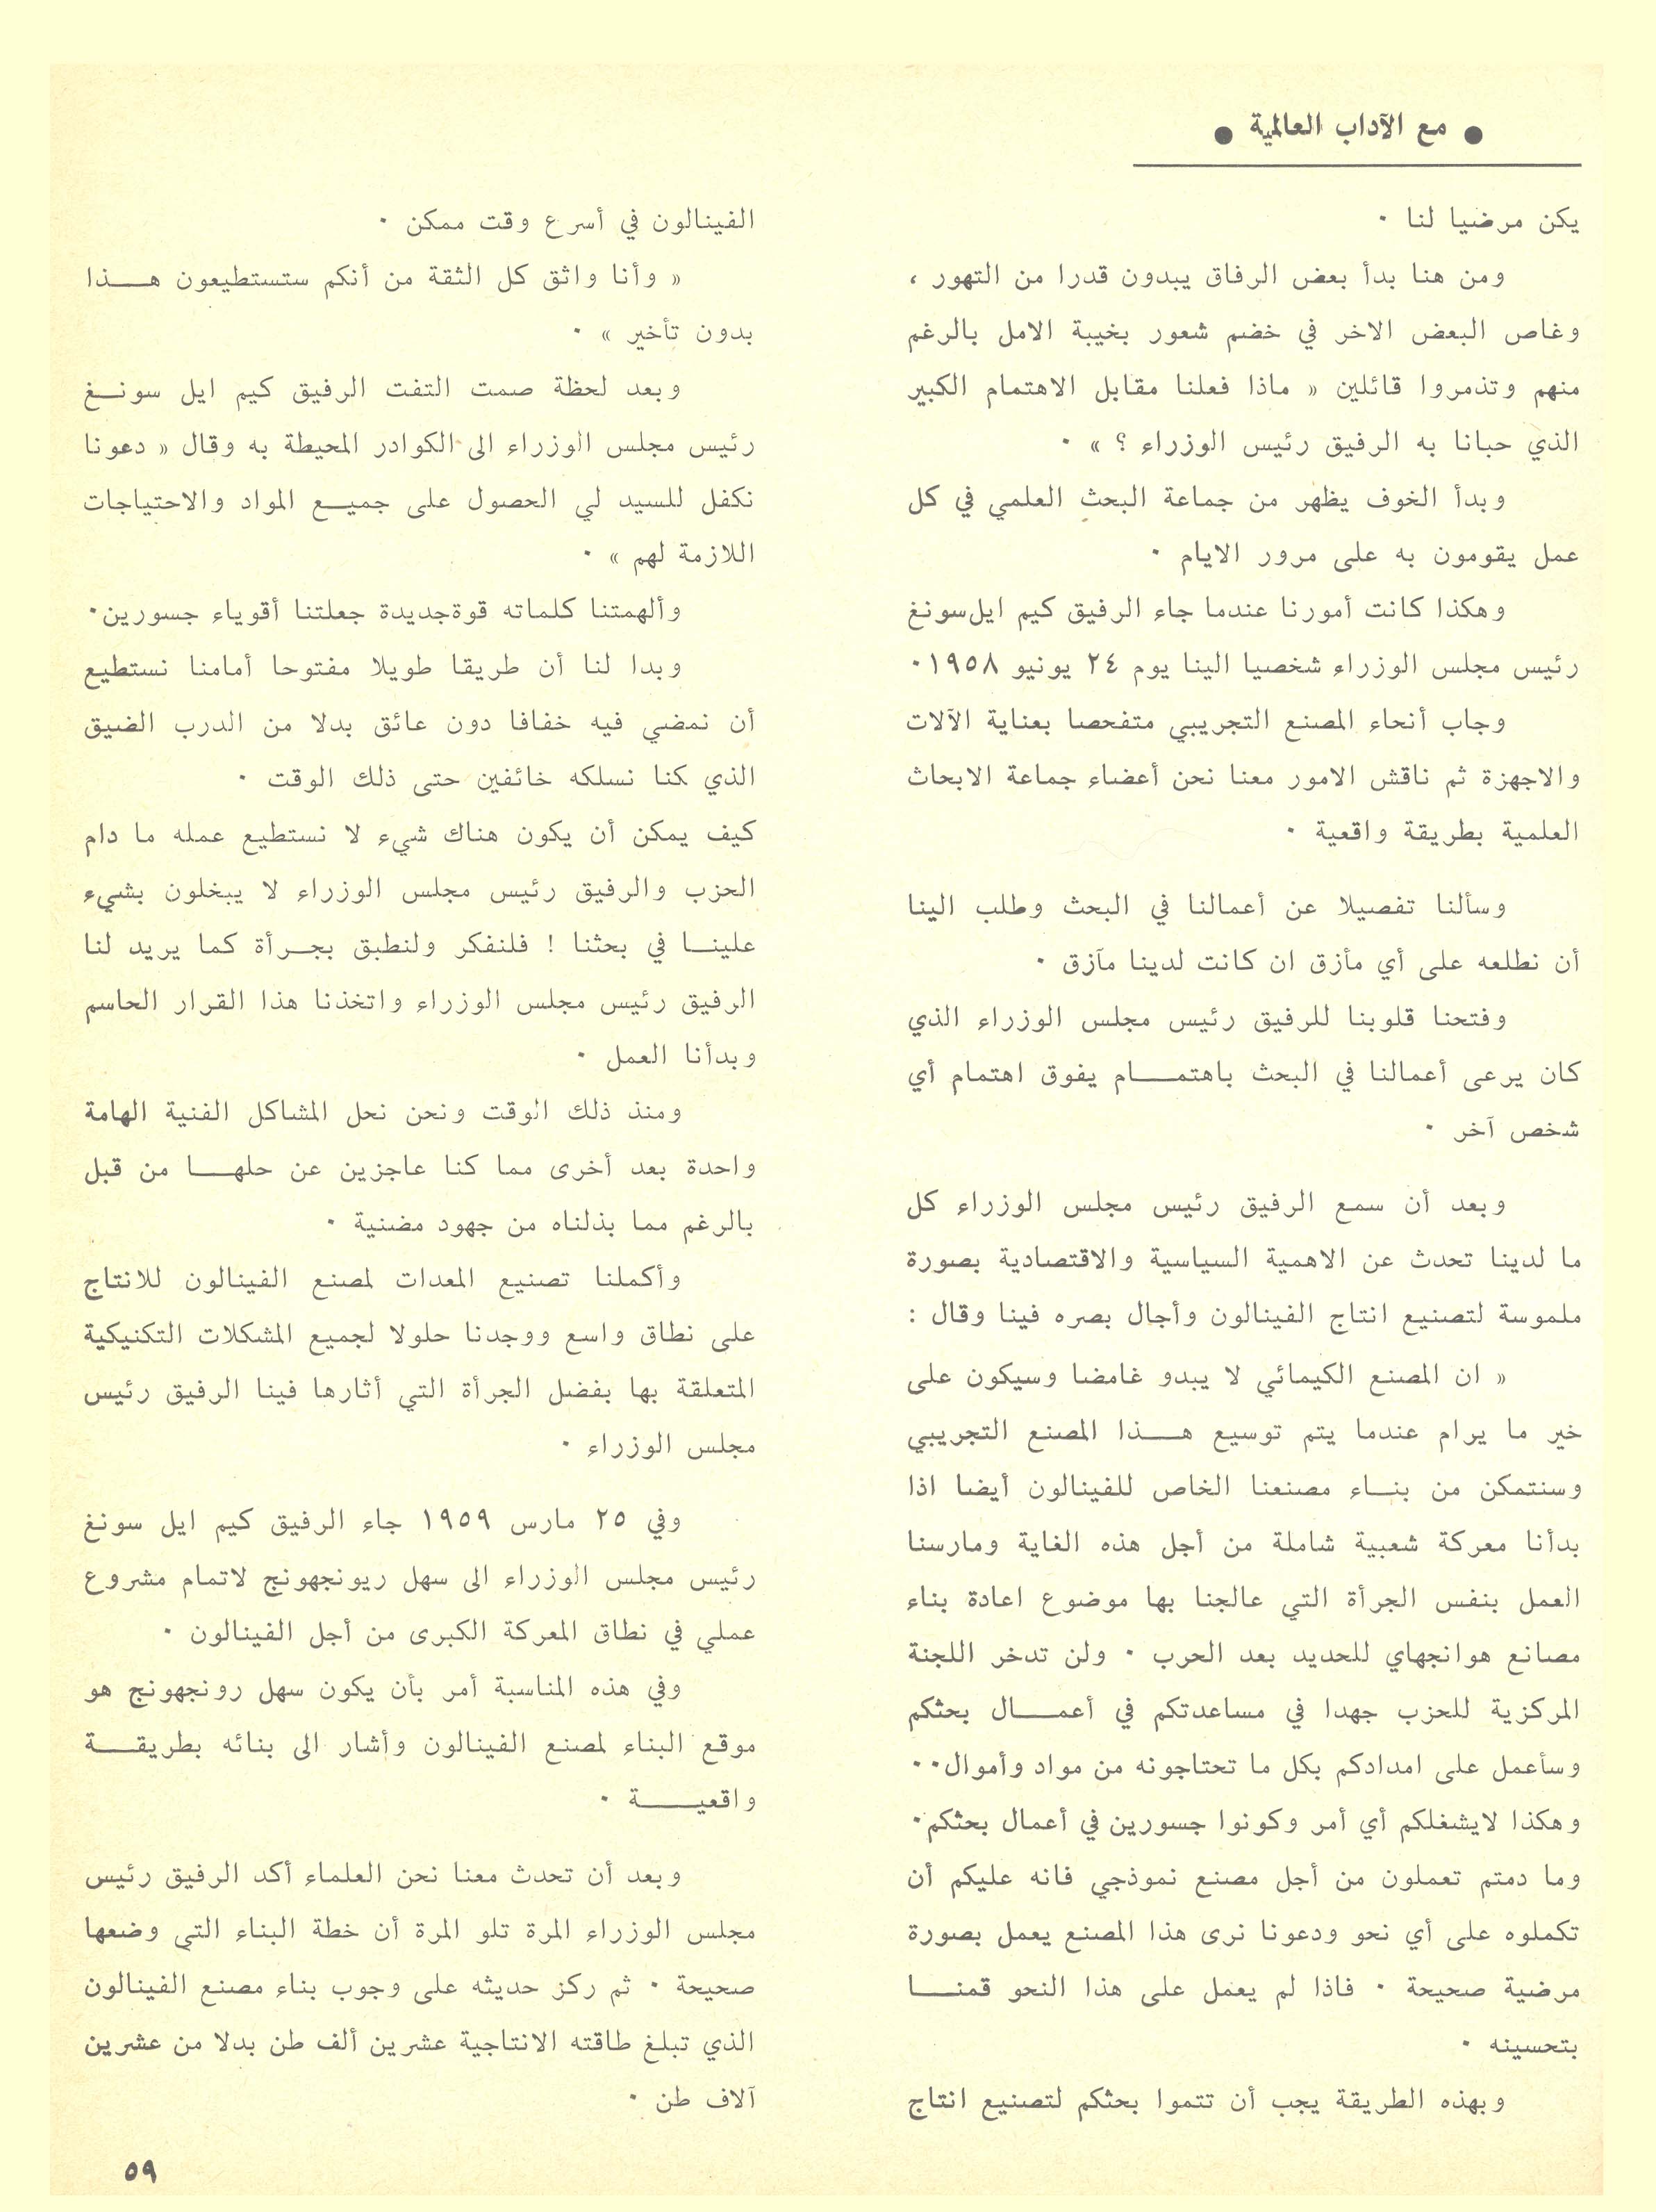 ● مع الآداب العالمية ●
يكن مرضيا لنا ٠
ومن هنا بدأ بعض الرفاق يبدون قدرا من التهور ،
وغاص البعض الاخر في خضم شعور بخيبة الامل بالرغم
منهم وتذمروا قائلين « ماذا فعلنا مقابل الاهتمام الكبير
الذي حبانا به الرفيق رئيس الوزراء ؟ » ٠
وبدأ الخوف يظهر من جماعة البحث العلمي في كل
عمل يقومون به على مرور الايام ٠
وهكذا كانت أمورنا عندما جاء الرفيق كيم ايل سونغ
رئيس مجلس الوزراء شخصيا الينا يوم ٢٤ يونيو ١٩٥٨ ٠
وجاب أنحاء المصنع التجريبي متفحصا بعناية الآلات
والاجهزة ثم ناقش الامور معنا نحن أعضاء جماعة الابحاث
العلمية بطريقة واقعية ٠
وسألنا تفصيلا عن أعمالنا في البحث وطلب الينا
أن نطلعه على أي مأزق ان كانت لدينا مآزق ٠
وفتحنا قلوبنا للرفيق رئيس مجلس الوزراء الذي
كان يرعى أعمالنا في البحث باهتمام يفوق اهتمام أي
شخص آخر ٠
وبعد أن سمع الرفيق رئيس مجلس الوزراء كل
ما لدينا تحدث عن الاهمية السياسية والاقتصادية بصورة
ملموسة لتصنيع انتاج الفينالون وأجال بصره فينا وقال :
« ان المصنع الكيمائي لا يبدو غامضا وسيكون على
خير ما يرام عندما يتم توسيع هذا المصنع التجريبي
وسنتمكن من بناء مصنعنا الخاص للفينالون أيضا اذا
بدأنا معركة شعبية شاملة من أجل هذه الغاية ومارسنا
العمل بنفس الجرأة التي عالجنا بها موضوع اعادة بناء
مصانع هوانجهاي للحديد بعد الحرب ٠ ولن تدخر اللجنة
المركزية للحزب جهدا في مساعدتكم في أعمال بحثكم
وسأعمل على امدادكم بكل ما تحتاجونه من مواد وأموال ٠٠
وهكذا لايشغلكم أي أمر وكونوا جسورين في أعمال بحثكم ٠
وما دمتم تعملون من أجل مصنع نموذجي فانه عليكم أن
تكملوه على أي نحو ودعونا نرى هذا المصنع يعمل بصورة
مرضية صحيحة ٠ فاذا لم يعمل على هذا النحو قمنا
بتحسينه ٠
وبهذه الطريقة يجب أن تتموا بحثكم لتصنيع انتاج
الفينالون في أسرع وقت ممكن ٠
« وأنا واثق كل الثقة من أنكم ستستطيعون هذا
بدون تأخير » ٠
وبعد لحظة صمت التفت الرفيق كيم ايل سونغ
رئيس مجلس الوزراء الى الكوادر المحيطة به وقال « دعونا
نكفل للسيد لي الحصول على جميع المواد والاحتياجات
اللازمة لهم » ٠
وألهمتنا كلماته قوةجديدة جعلتنا أقوياء جسورين ٠
وبدا لنا أن طريقا طويلا مفتوحا أمامنا نستطيع
أن نمضي فيه خفافا دون عائق بدلا من الدرب الضيق
الذي كنا نسلكه خائفين حتى ذلك الوقت ٠
كيف يمكن أن يكون هناك شيء لا نستطيع عمله ما دام
الحزب والرفيق رئيس مجلس الوزراء لا يبخلون بشيء
علينا في بحثنا ! فلنفكر ولنطبق بجرأة كما يريد لنا
الرفيق رئيس مجلس الوزراء واتخذنا هذا القرار الحاسم
وبدأنا العمل ٠
ومنذ ذلك الوقت ونحن نحل المشاكل الفنية الهامة
واحدة بعد أخرى مما كنا عاجزين عن حلها من قبل
بالرغم مما بذلناه من جهود مضنية ٠
وأكملنا تصنيع المعدات لمصنع الفينالون للانتاج
على نطاق واسع ووجدنا حلولا لجميع المشكلات التكنيكية
المتعلقة بها بفضل الجرأة التي أثارها فينا الرفيق رئيس
مجلس الوزراء ٠
وفي ٢٥ مارس ١٩٥٩ جاء الرفيق كيم ايل سونغ
رئيس مجلس الوزراء الى سهل ريونجهونج لاتمام مشروع
عملي في نطاق المعركة الكبرى من أجل الفينالون ٠
وفي هذه المناسبة أمر بأن يكون سهل رونجهونج هو
موقع البناء لمصنع الفينالون وأشار الى بنائه بطريقة
واقعية ٠
وبعد أن تحدث معنا نحن العلماء أكد الرفيق رئيس
مجلس الوزراء المرة تلو المرة أن خطة البناء التي وضعها
صحيحة ٠ ثم ركز حديثه على وجوب بناء مصنع الفينالون
الذي تبلغ طاقته الانتاجية عشرين ألف طن بدلا من عشرين
آلاف طن ٠
٥٩